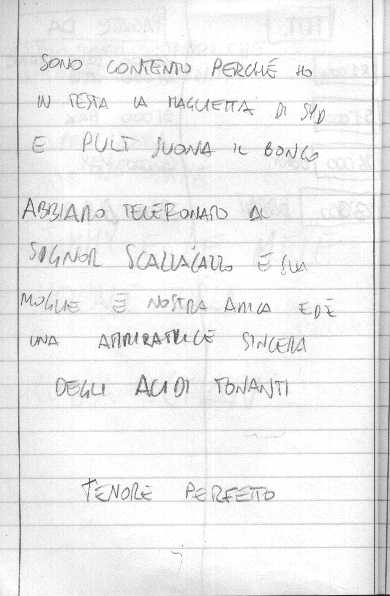 SONO CONTENTO PERCHÉ HO
IN TESTA LA MAGLIETTA DI SYD
E PULT SUONA IL BONGO
ABBIAMO TELEFONATO AL
SIGNOR SCALLACAZZO E SUA
MOGLIE È NOSTRA AMICA ED È
UNA AMMIRATRICE SINCERA
DEGLI ACIDI TONANTI
TENORE PERFETTO